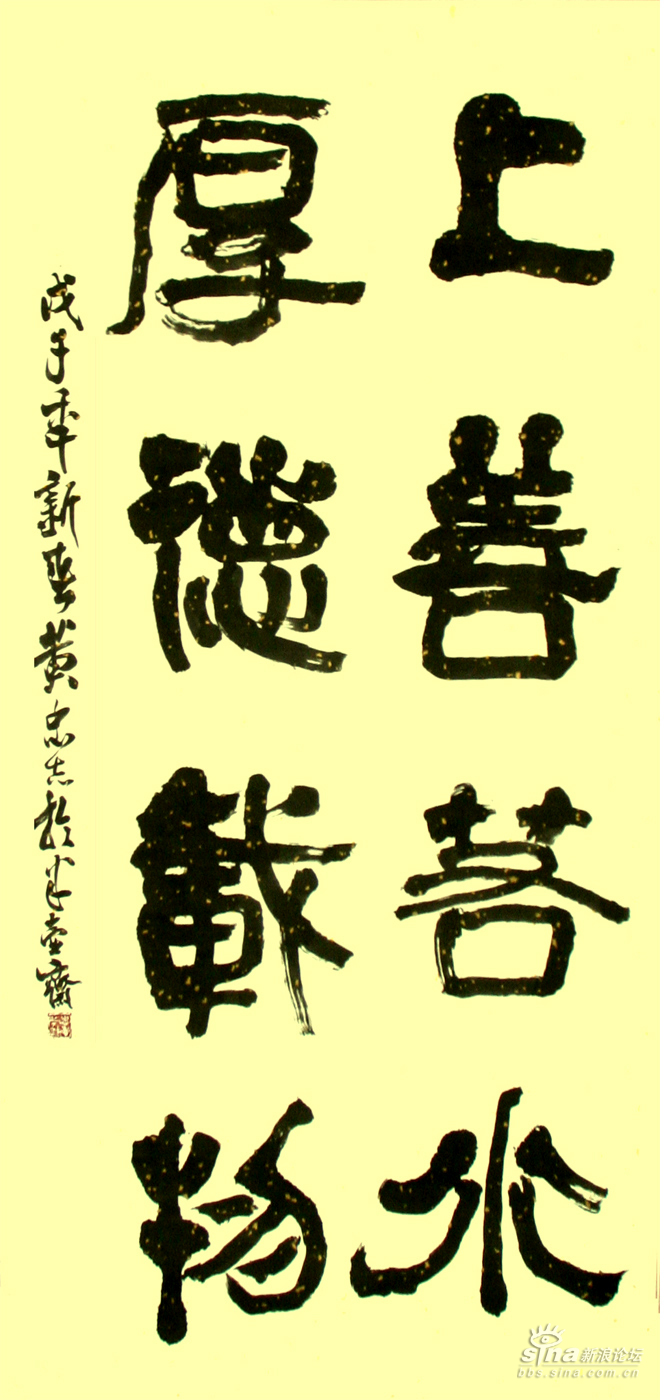 上善若水
厚德载物
戊子年新春黄忠志於半壶斋
sina新浪论坛
bbs.sina.com.cn